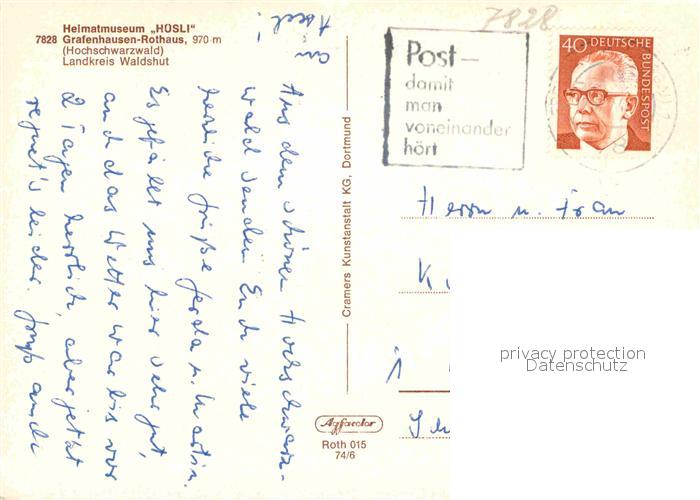 Heimatmuseum „HÜSLI“
7828 Grafenhausen-Rothaus, 970 m
(Hochschwarzwald)
Landkreis Waldshut
7828
Post-
damit
man
voneinander
hört
40 DEUTSCHE
BUNDESPOST
Aus dem schönen Hochschwarz-
wald senden Euch viele
herzliche Grüße Gerda u. Martin.
Es gefällt uns hier sehr gut,
auch das Wetter war bis vor
2 Tagen herrlich, aber jetzt
regnet's leider. Gruß auch
an
Axel!
Cramers Kunstanstalt KG, Dortmund
Herrn u. Frau
K
privacy protection
Datenschutz
Agfacolor
Roth 015
74/6